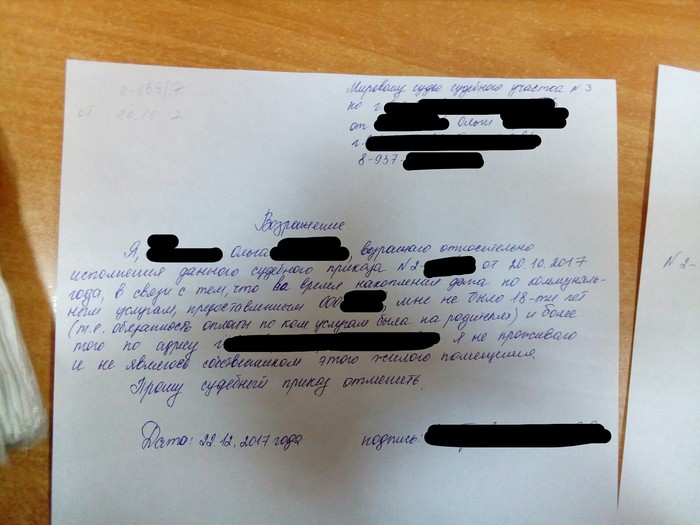 Мировому судье судебного участка №3
по г.
от Ольги
г.
8-937-
2-659/17
от 20.10.17
Возражение.
Я, Ольга , возражаю относительно
исполнения данного судебного приказа №2- от 20.10.2017
года, в связи с тем, что во время накопления долга по коммуналь-
ным услугам, предоставленным ООО , мне не было 18-ти лет
(т.е. обязанность оплаты по ком услугам была на родителях) и более
того по адресу г. я не проживаю
и не являюсь собственником этого жилого помещения.
Прошу судебный приказ отменить.
Дата: 22.12.2017 года подпись:
№2-